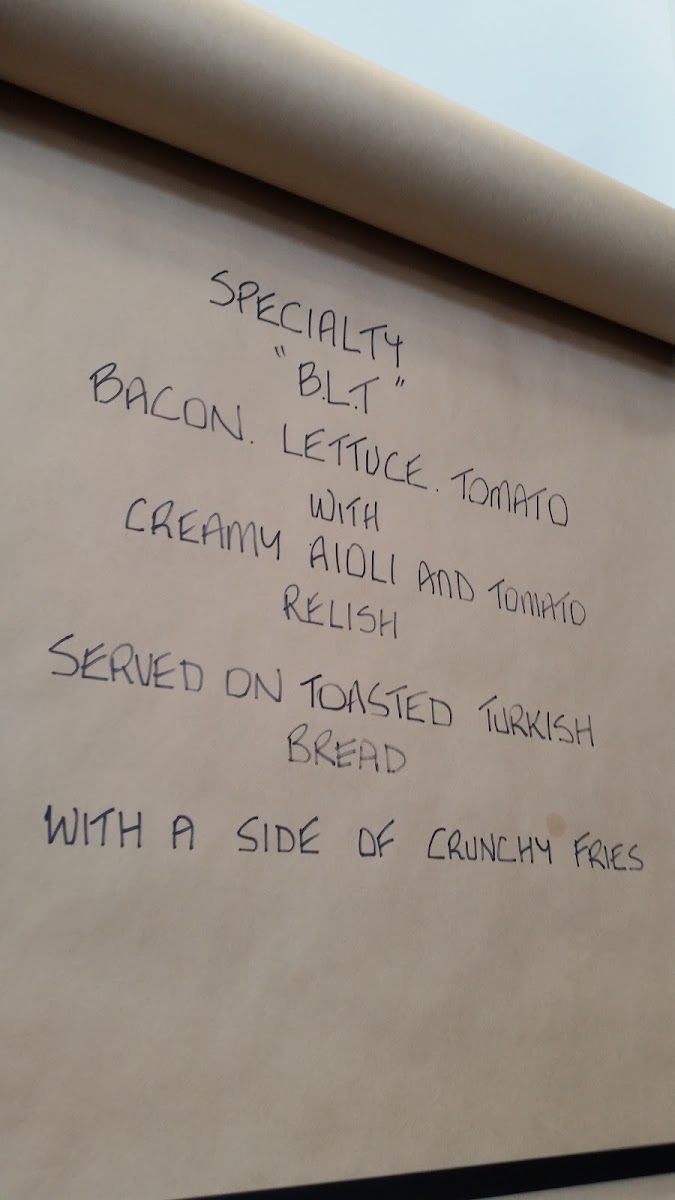 SPECIALTY
"B.L.T"
BACON. LETTUCE. TOMATO
WITH
CREAMY AIOLI AND TOMATO
RELISH
SERVED ON TOASTED TURKISH
BREAD
WITH A SIDE OF CRUNCHY FRIES